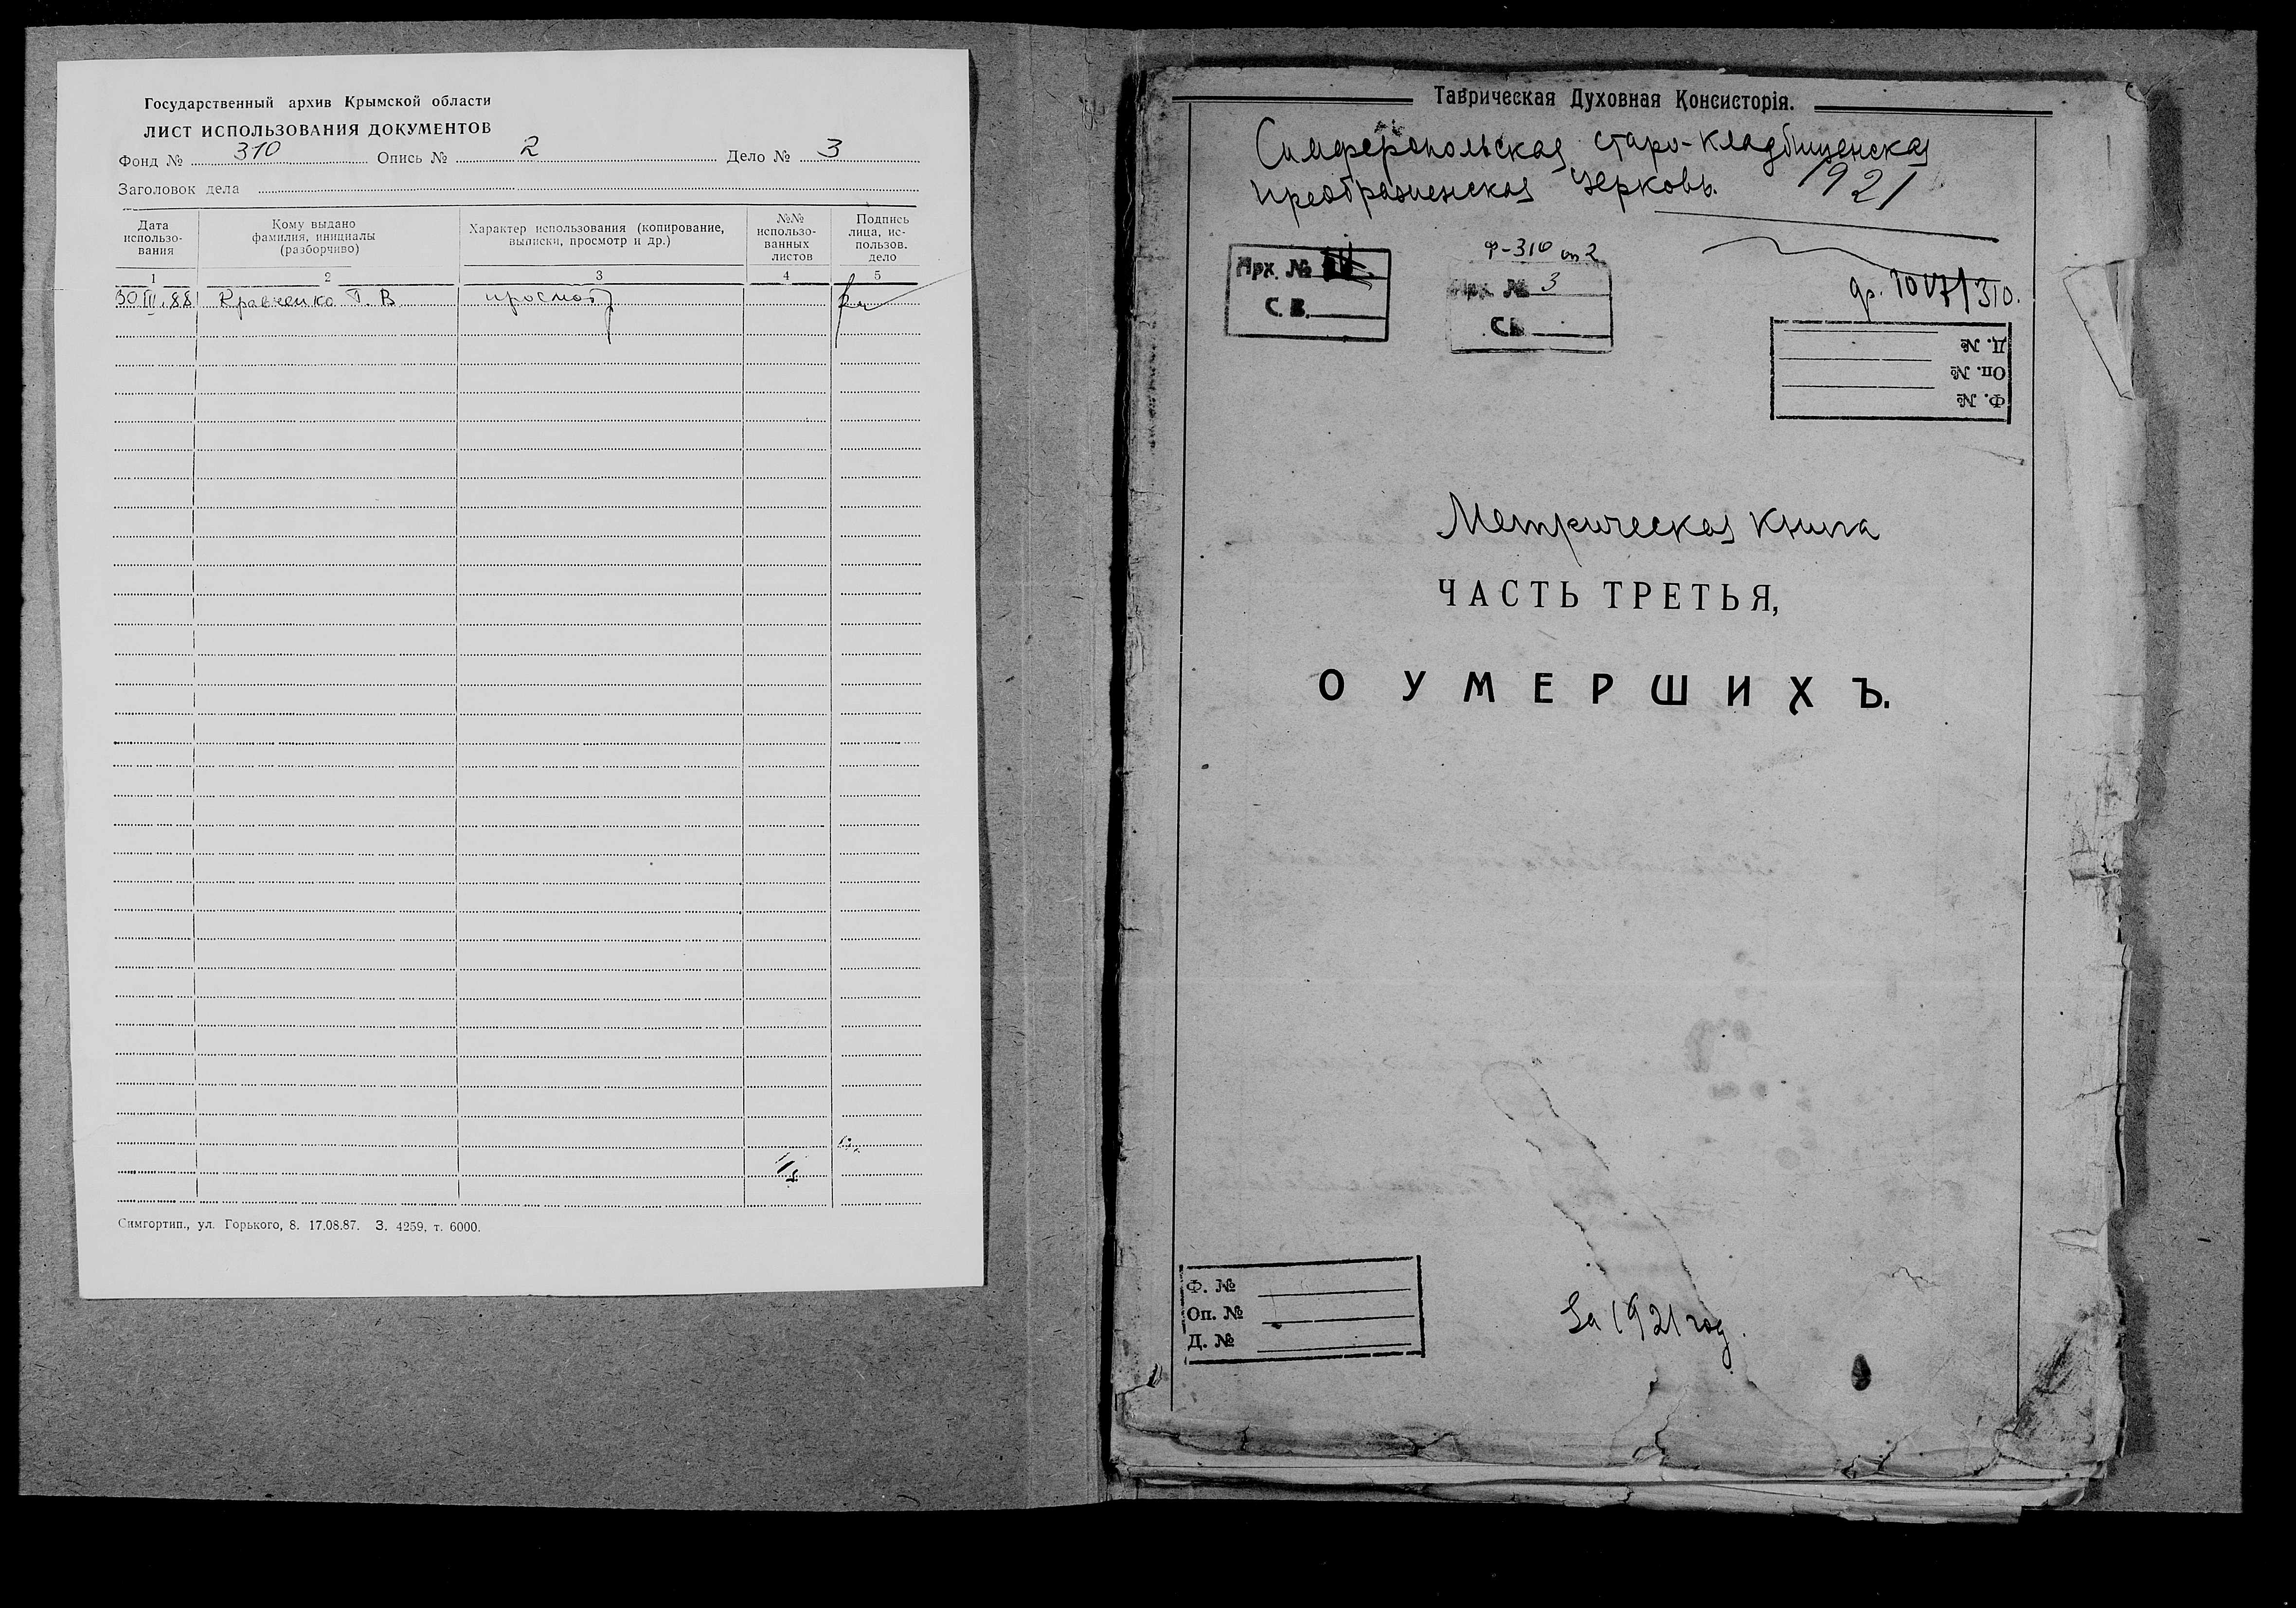 Государственный архив Крымской области
ЛИСТ ИСПОЛЬЗОВАНИЯ ДОКУМЕНТОВ
Фонд № 310 Опись № 2 Дело № 3
Заголовок дела
Дата использо-вания
Кому выдано фамилия, инициалы (разборчиво)
Характер использования (копирование, выписки, просмотр и др.)
№№ использо-ванных листов
Подпись лица, ис-пользов. дело
1 2 3 4 5
30 III.88 Кравченко Т. В просмотр
Симгортип., ул. Горького, 8. 17.08.87. З. 4259, т. 6000.
Таврическая Духовная Консисторія.
Симферопольская старо-кладбищенская
преображенская церковь. 1921
ф-310 оп 2
Арх. №
С. В.
Арх. № 3
С.В.
др. 1017/310.
Д. №
Оп. №
Ф. №
Метрическая книга
ЧАСТЬ ТРЕТЬЯ,
О УМЕРШИХЪ.
Ф. №
Оп. №
Д. №
За 1921 год.